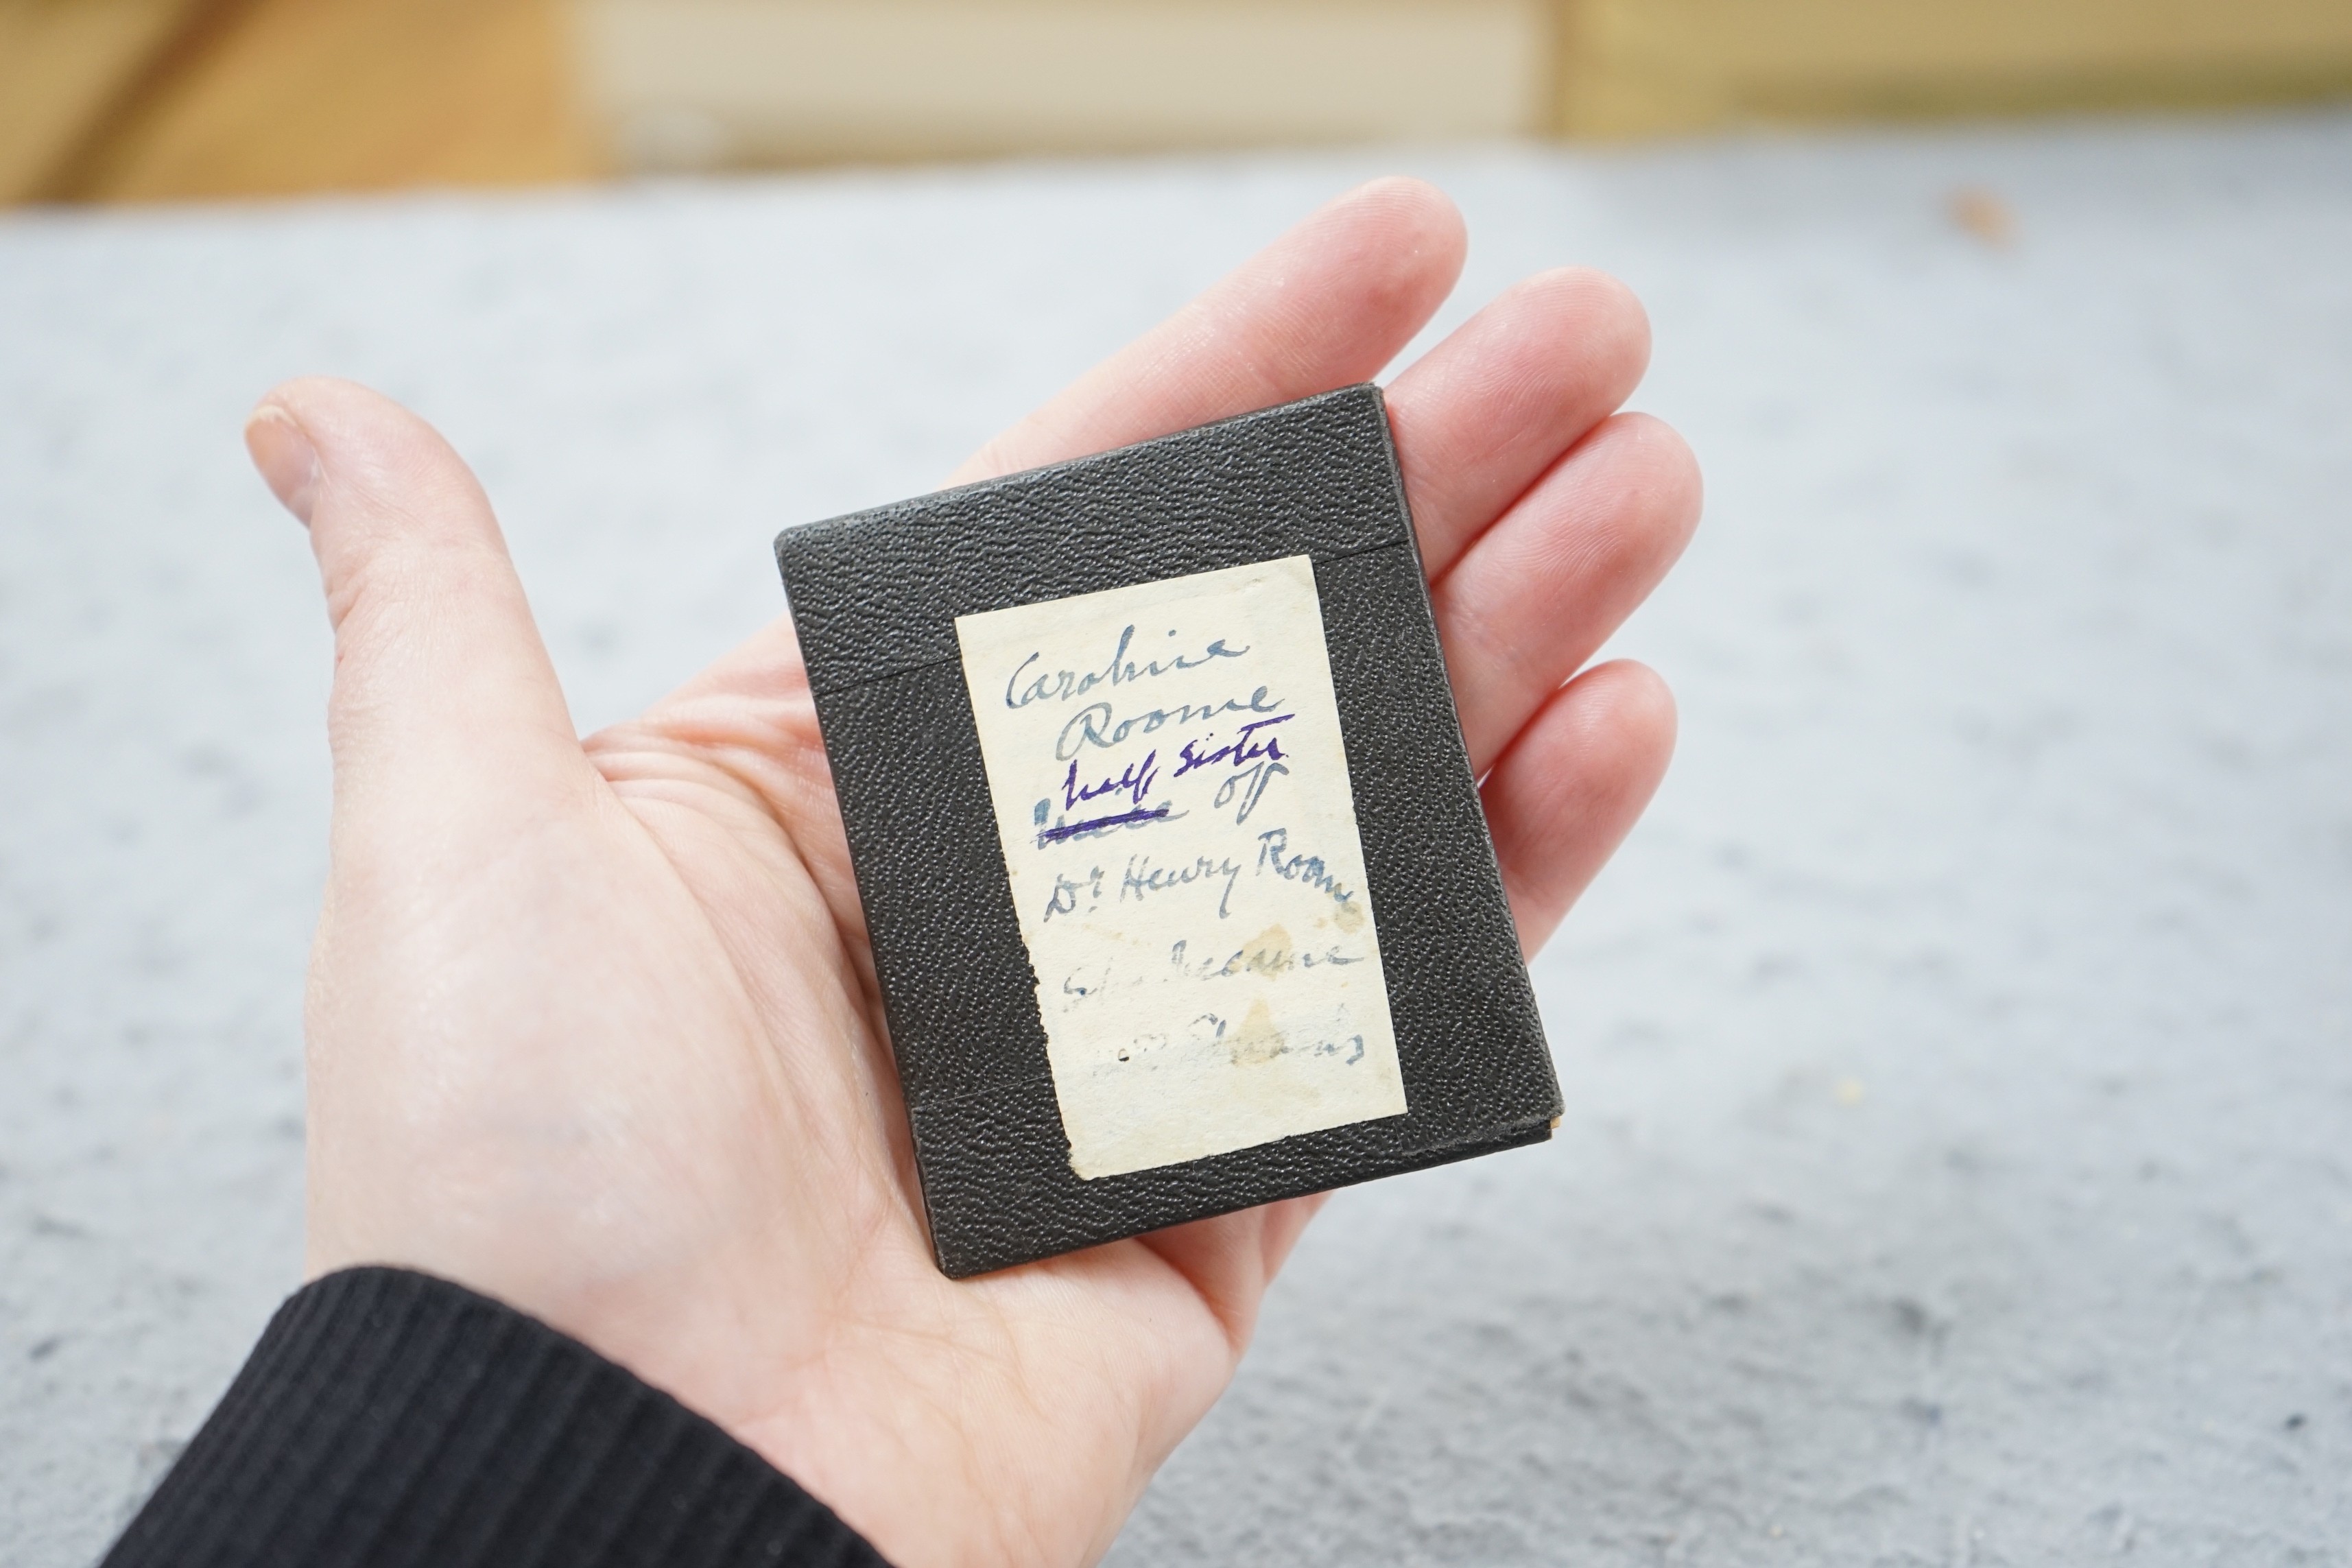 Caroline
Roome
half sister
niece of
Dr Henry Roome
She became